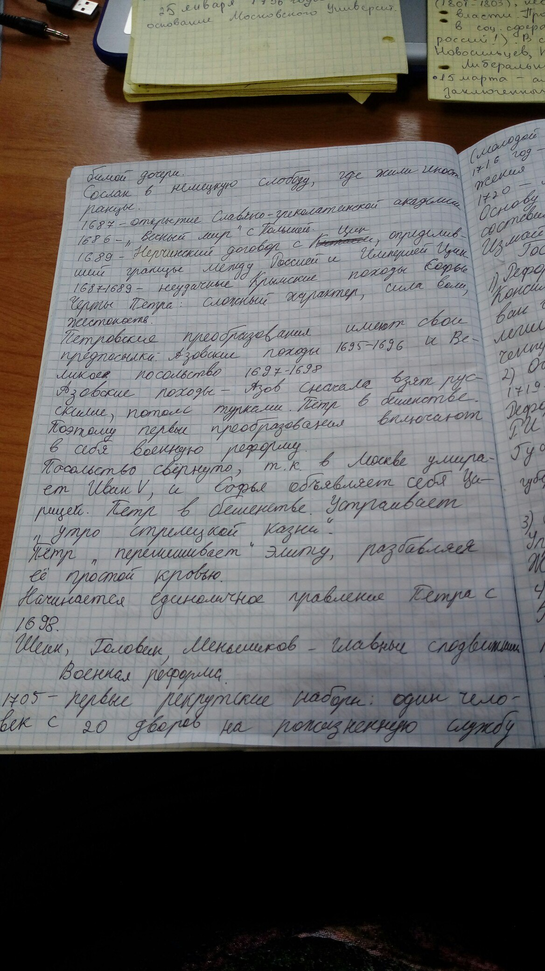 25 января 1755 года
основание Московского Универси
(1801-1805).
власти. Пр
в соц. сфере
россий
Новосильцев, К
либеральн
25 марта – а
заключенны
бимой дочери.
Сослан в немецкую слободу, где жили иност
ранцы.
1687 – открытие Славяно-греколатинской академии
1686 – „Вечный мир" с Польшей
1689 – Нерчинский договор с Цин, определив-
ший границы между Россией и Империей Цин
1687-1689 – неудачные Крымские походы Софьи
Черты Петра: сложный характер, сила воли,
жестокость.
Петровские преобразования имеют свои
предпосылки: Азовские походы 1695-1696 и Ве-
ликое посольство 1697-1698
Азовские походы – Азов сначала взят рус-
скими, потом турками. Петр в бешенстве.
Поэтому первые преобразования включают
в себя военную реформу
Посольство свёрнуто, т.к в Москве умира-
ет Иван V, и Софья объявляет себя Ца-
рицей. Петр в бешенстве. Устраивает
„утро стрелецкой казни".
Петр „перемешивает" элиту, разбавляя
её простой кровью.
Начинается единоличное правление Петра с
1698.
Шеин, Головин, Меньшиков – главные сподвижники
Военная реформа.
1705 – первые рекрутские наборы: один чело-
век с 20 дворов на пожизненную службу
(молодой
1716 год –
жения
1720 –
Основу
составил
Измай
Гос
1) Рефор
Конси
ван
2) Об
1719
Рефор
РИ
Гу
губе
3)
Уп